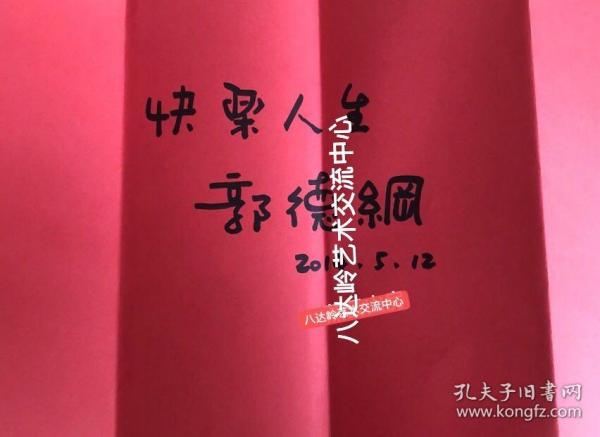 快樂人生
郭德綱
5.12
八达岭艺术交流中心
八达岭艺术交流中心
孔夫子旧书网
www.kongfz.com